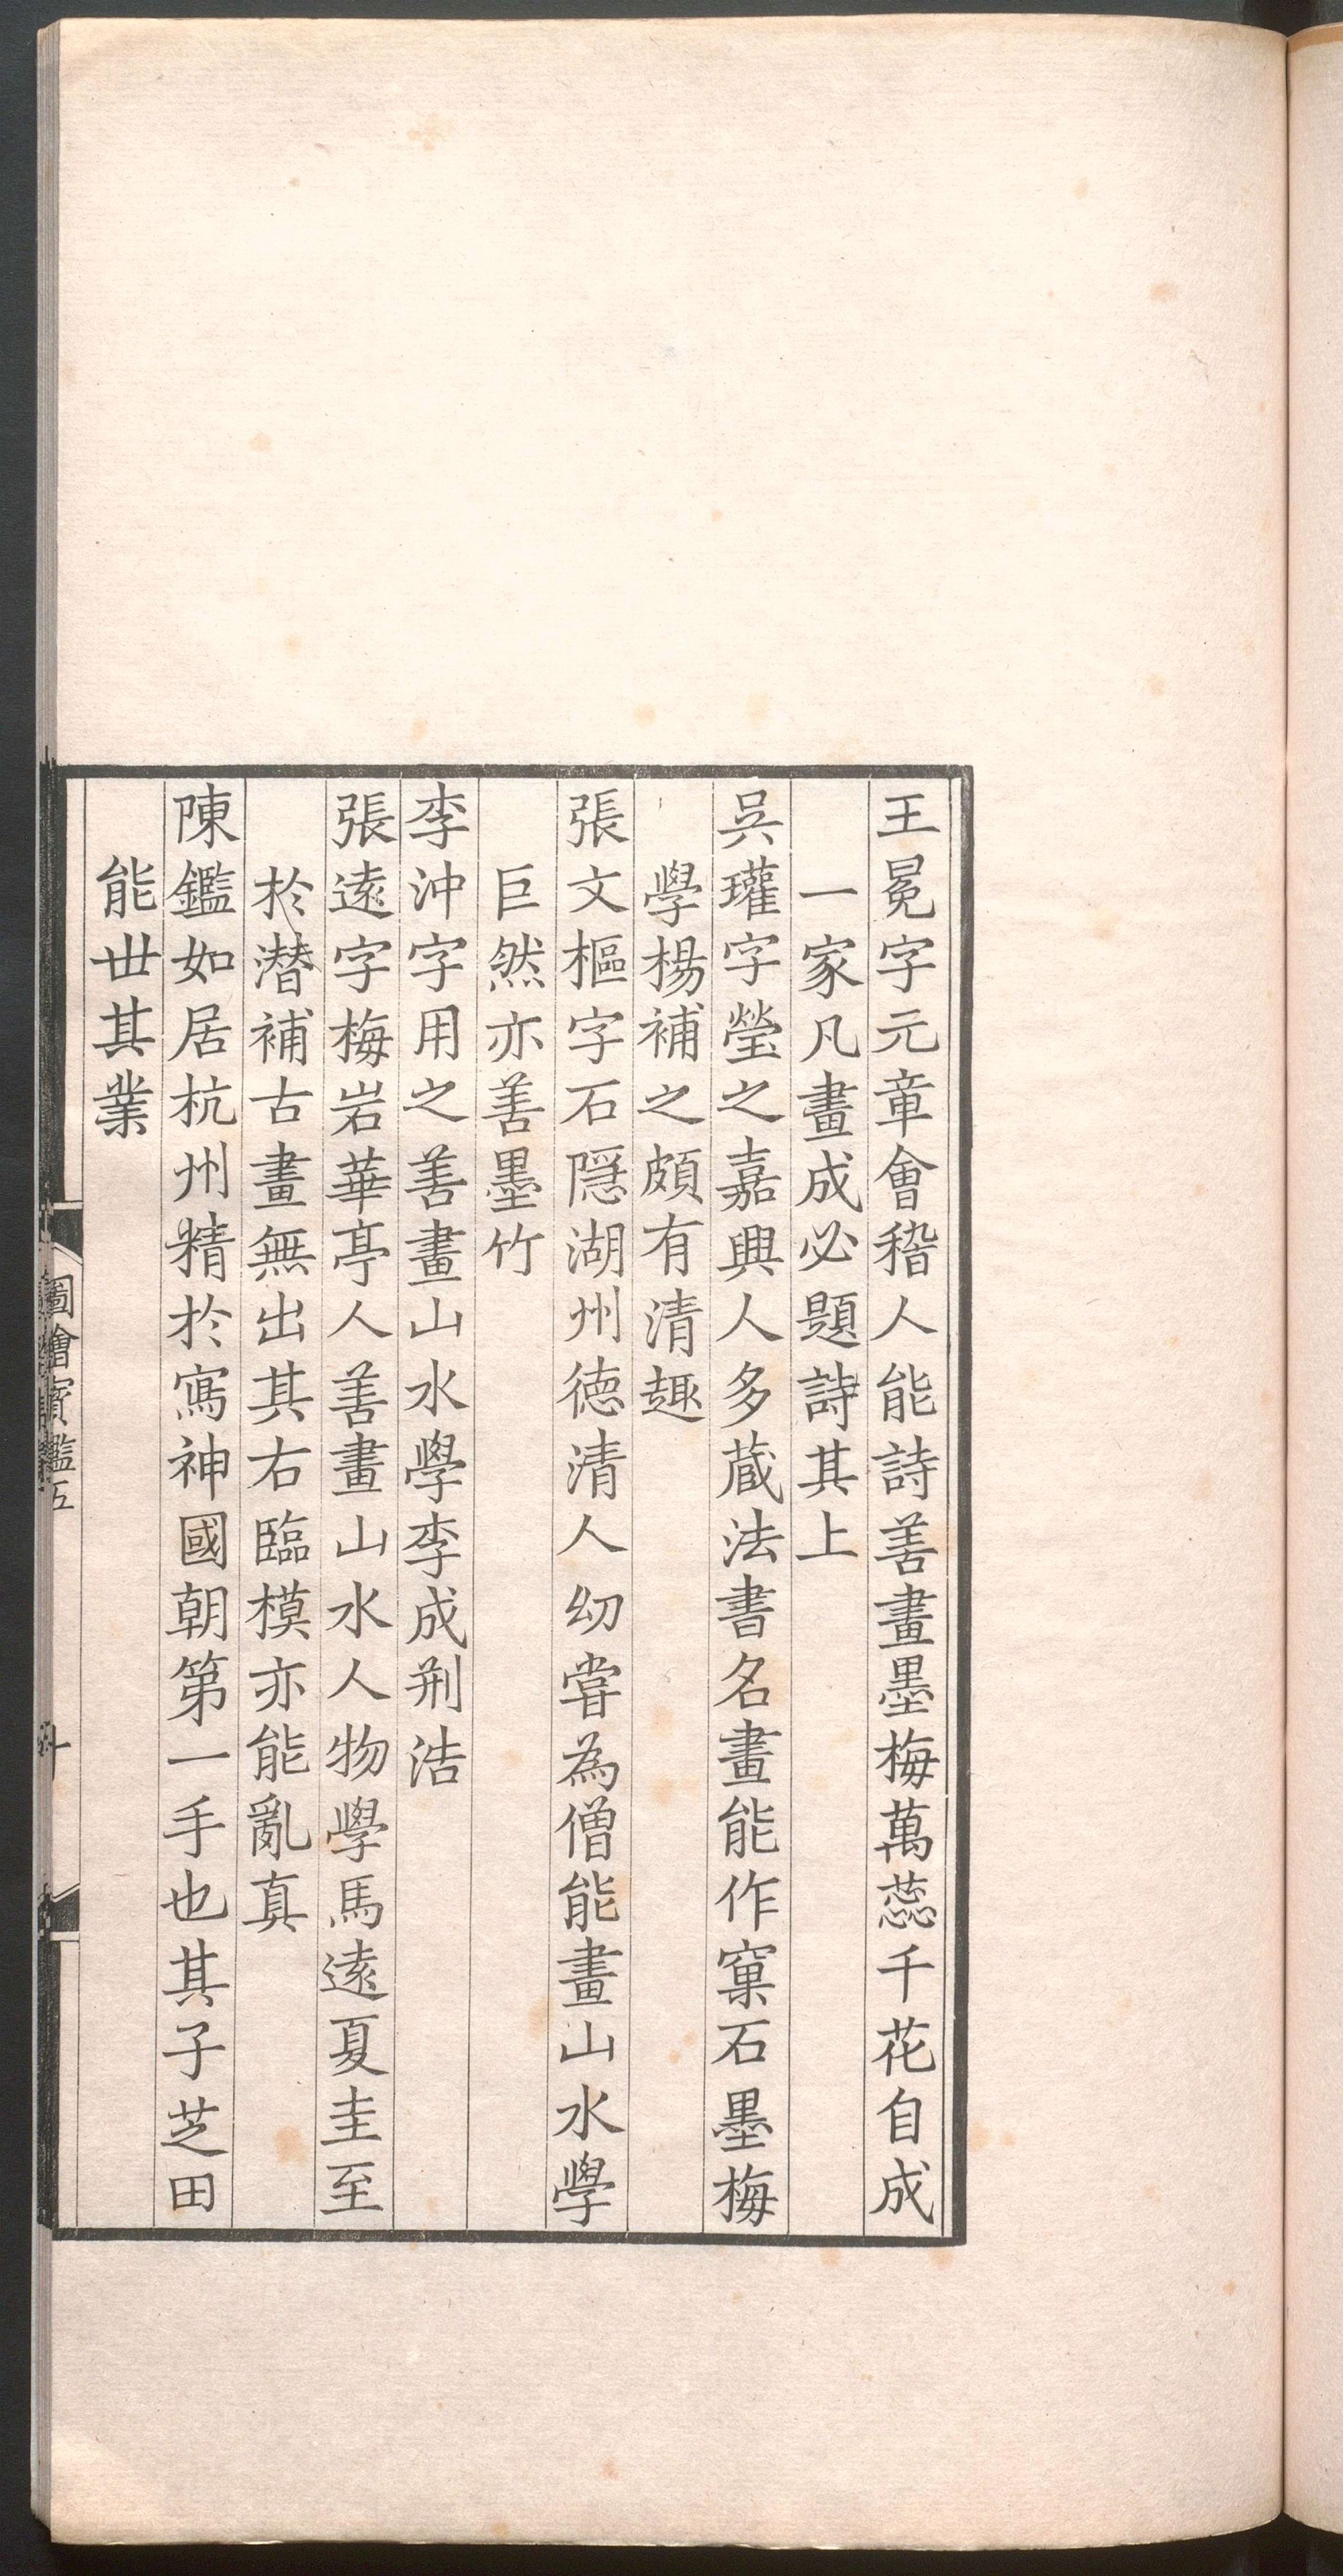 王冕字元章會稽人能詩善畫墨梅萬蕊千花自成
一家凡畫成必題詩其上
吳瓘字瑩之嘉興人多蔵法書名畫能作窠石墨梅
學楊補之頗有清趣
張文樞字石隱湖州德清人幼嘗為僧能畫山水學
巨然亦善墨竹
李沖字用之善畫山水學李成荆浩
張遠字梅岩華亭人善畫山水人物學馬遠夏圭至
於潜補古畫無出其右臨模亦能亂真
陳鑑如居杭州精於寫神國朝第一手也其子芝田
能丗其業
圖繪寶鑑五